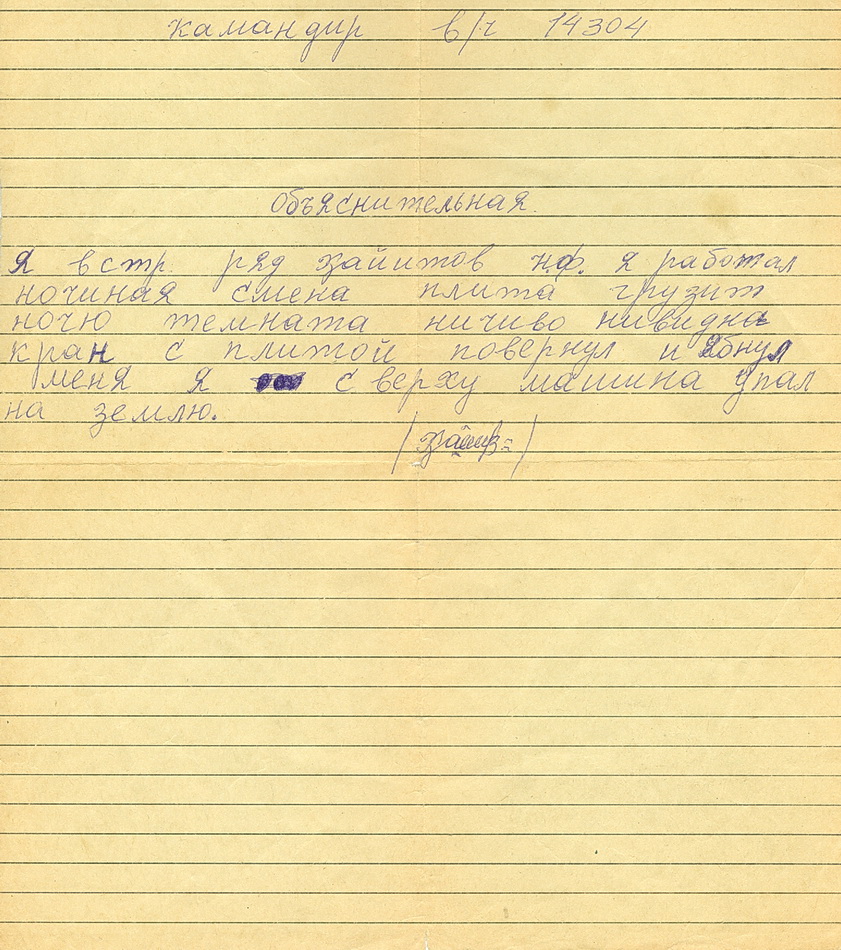 камандир в/г 14304
Объяснительная
Я в стр. ряд зайитов н.ф. я работал
ночиная смена плита грузит
ночю темната ничиво нивидна
кран с плитой повернул и ябнул
меня я с верху машина упал
на землю.